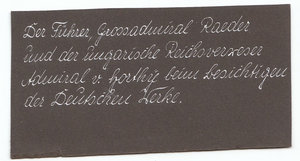 Der Führer, Grossadmiral Raeder
und der ungarische Reichsverweser
Admiral v. Horthie beim besichtigen
der Deutschen Werke.